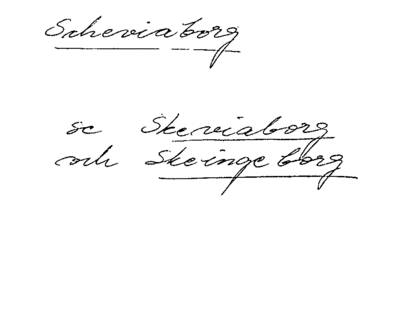 Scheviaborg
se Skeviaborg
och Skeingeborg